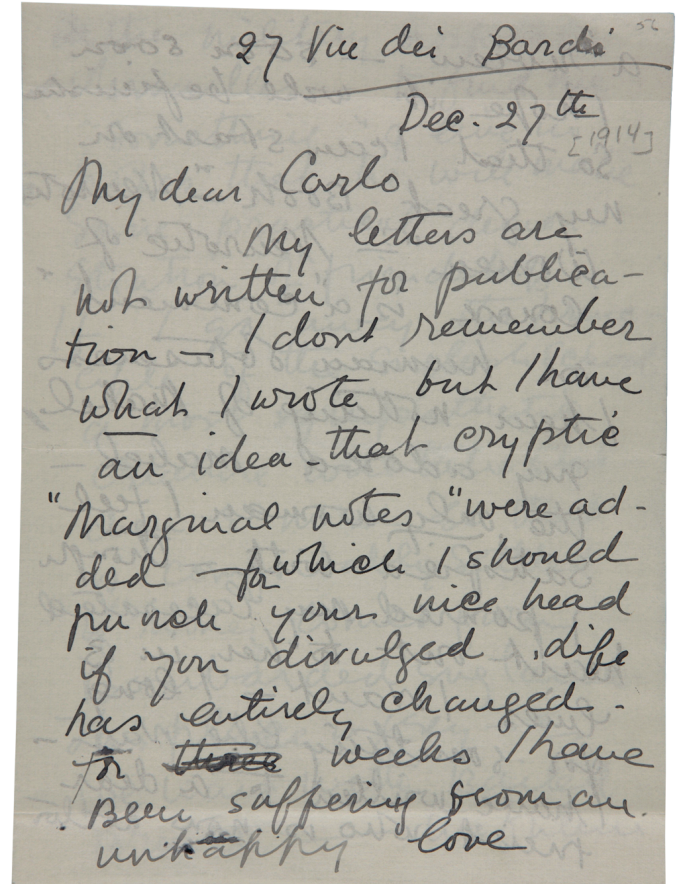 56
27 Via dei Bardi
Dec. 27th
[1914]
My dear Carlo
My letters are
not written for publica-
tion — I dont remember
what I wrote but I have
an idea that cryptic
"Marginal notes" were ad-
ded — for which I should
punch your nice head
if you divulged. Life
has entirely changed.
for weeks I have
Been suffering from an
unhappy love